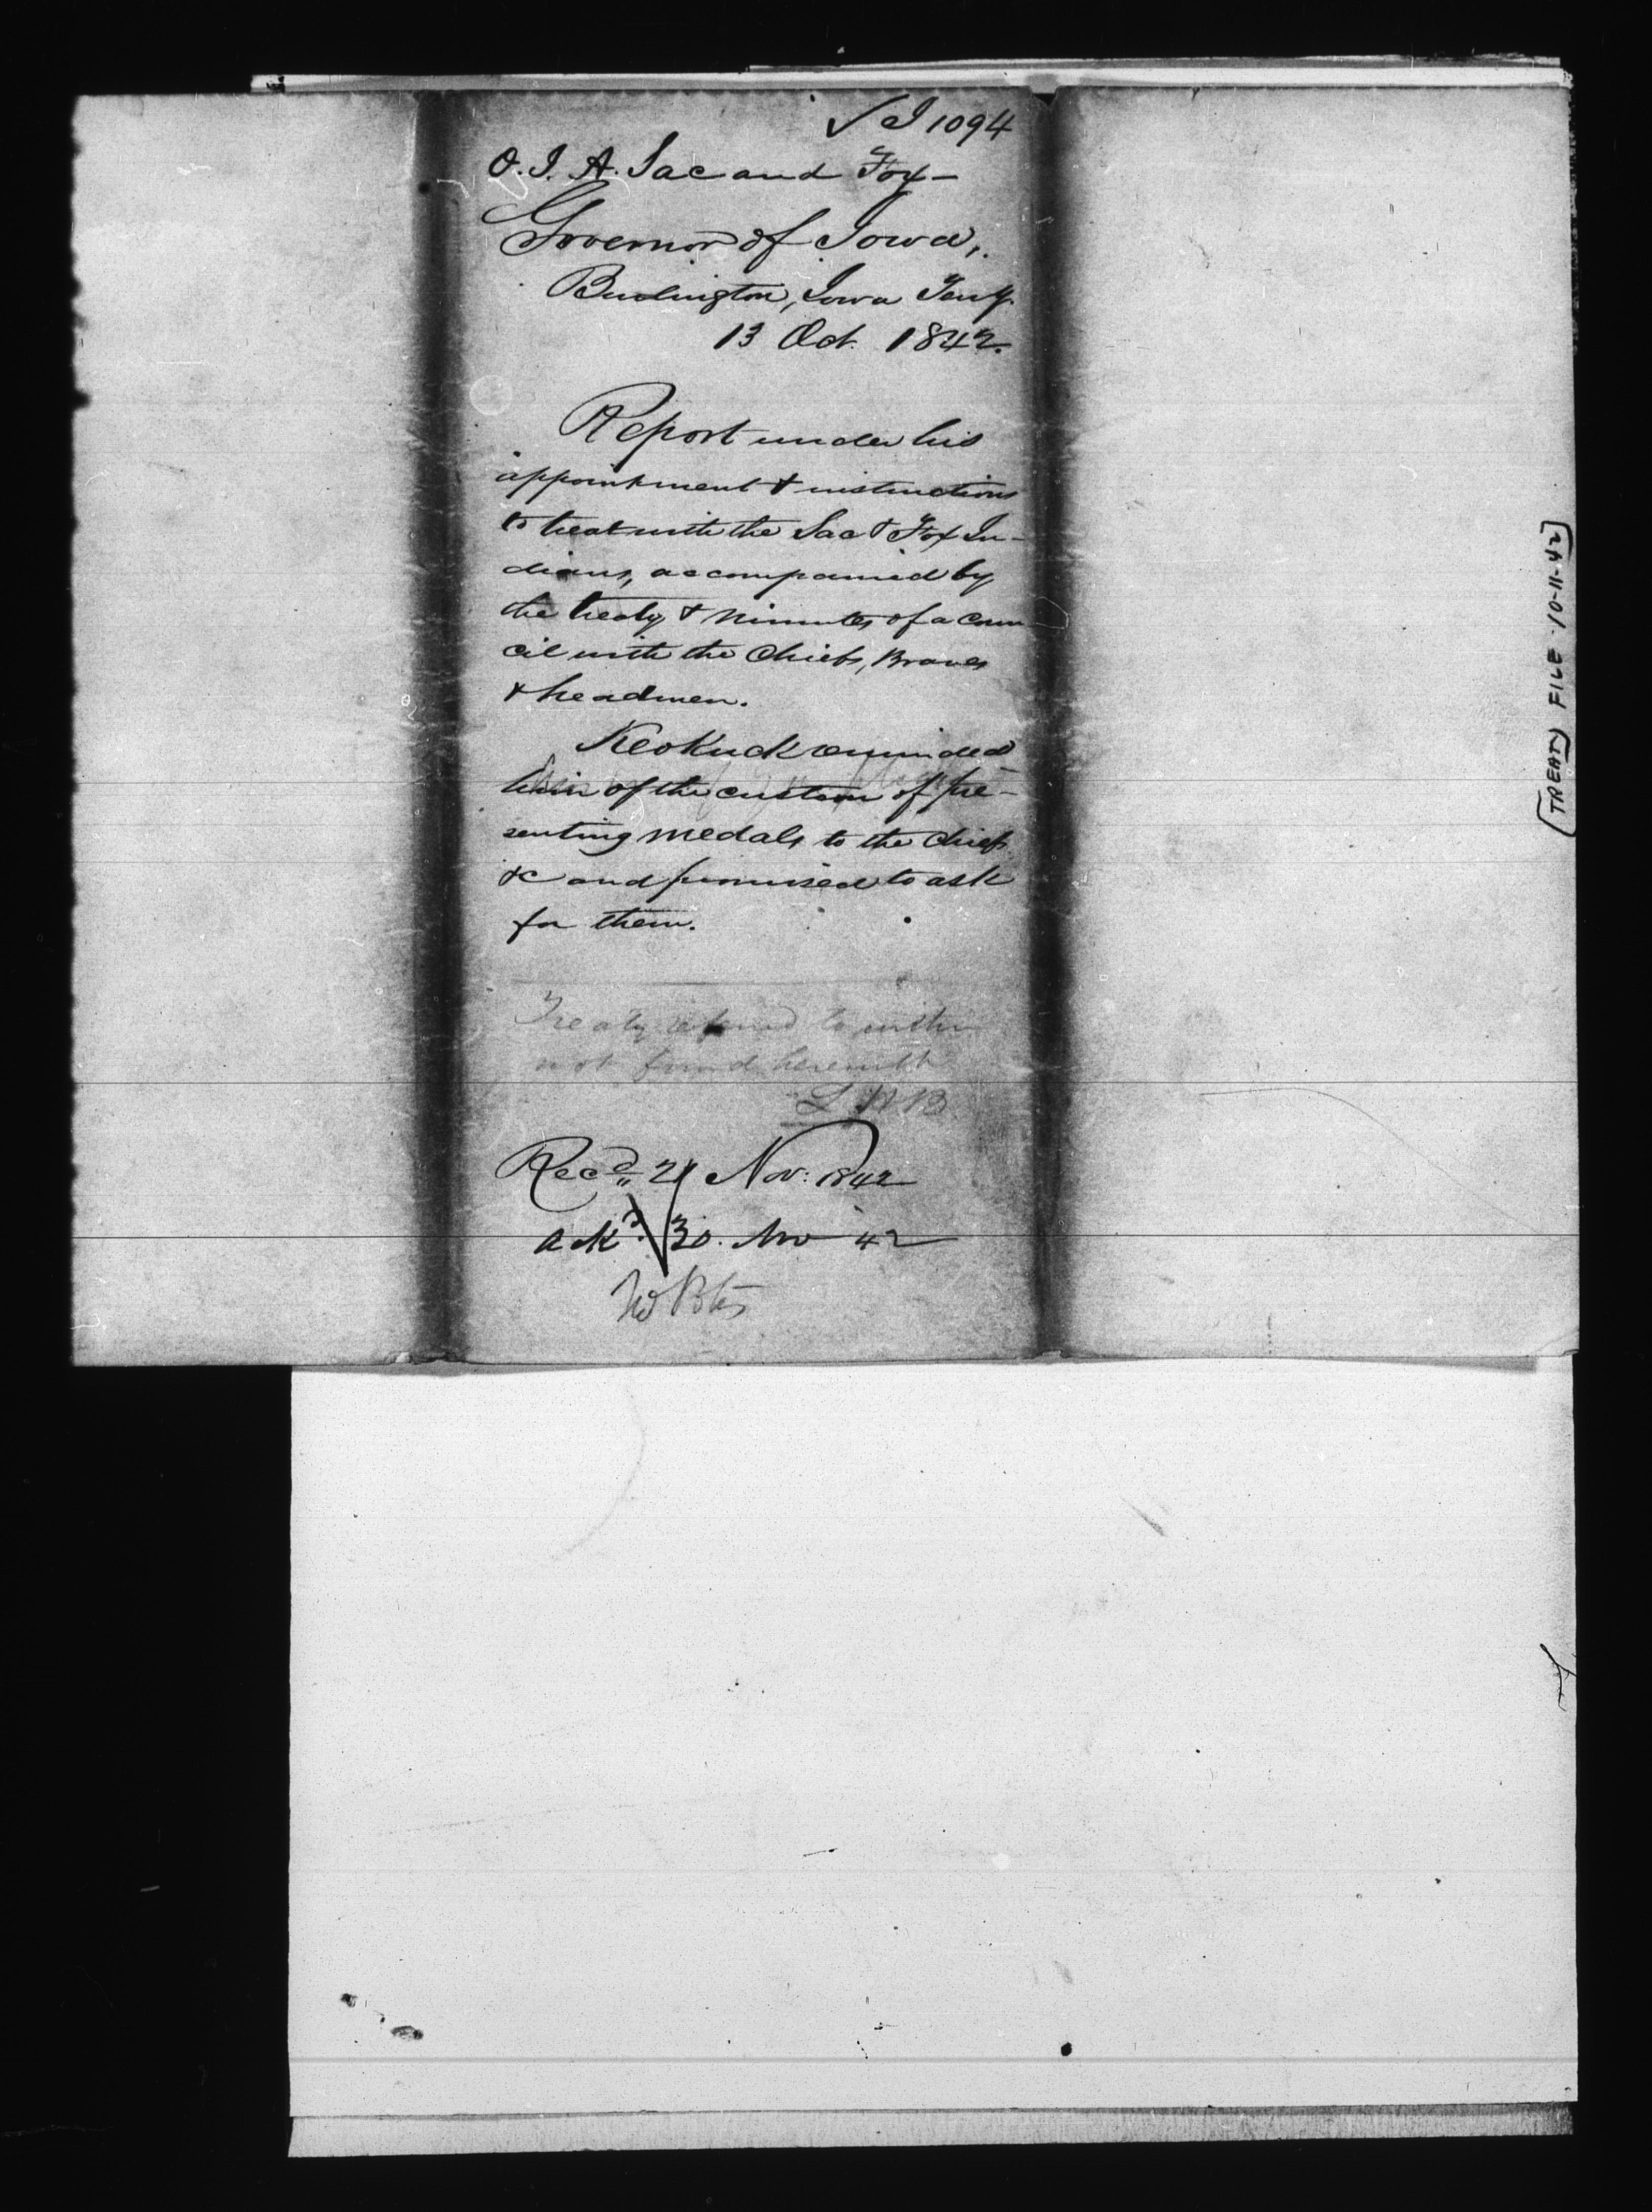 √ I 1094
O. I. A. Sac and Fox –
Governor of Iowa,
Burlington, Iowa Terry.
13 Oct. 1842.
Report under his
appointment & instructions
to treat with the Sac & Fox In-
dians, accompanied by
the treaty & minutes of a coun
cil with the Chiefs, Braves
& headmen.
Keokuck reminded
him of the custom of pre-
senting medals to the Chiefs
&c and promised to ask
for them.
Treaty referred to within
not found herewith
Recd 21 Nov: 1842
ackd 30. Nov 42
(TREATY FILE 10-11-42)